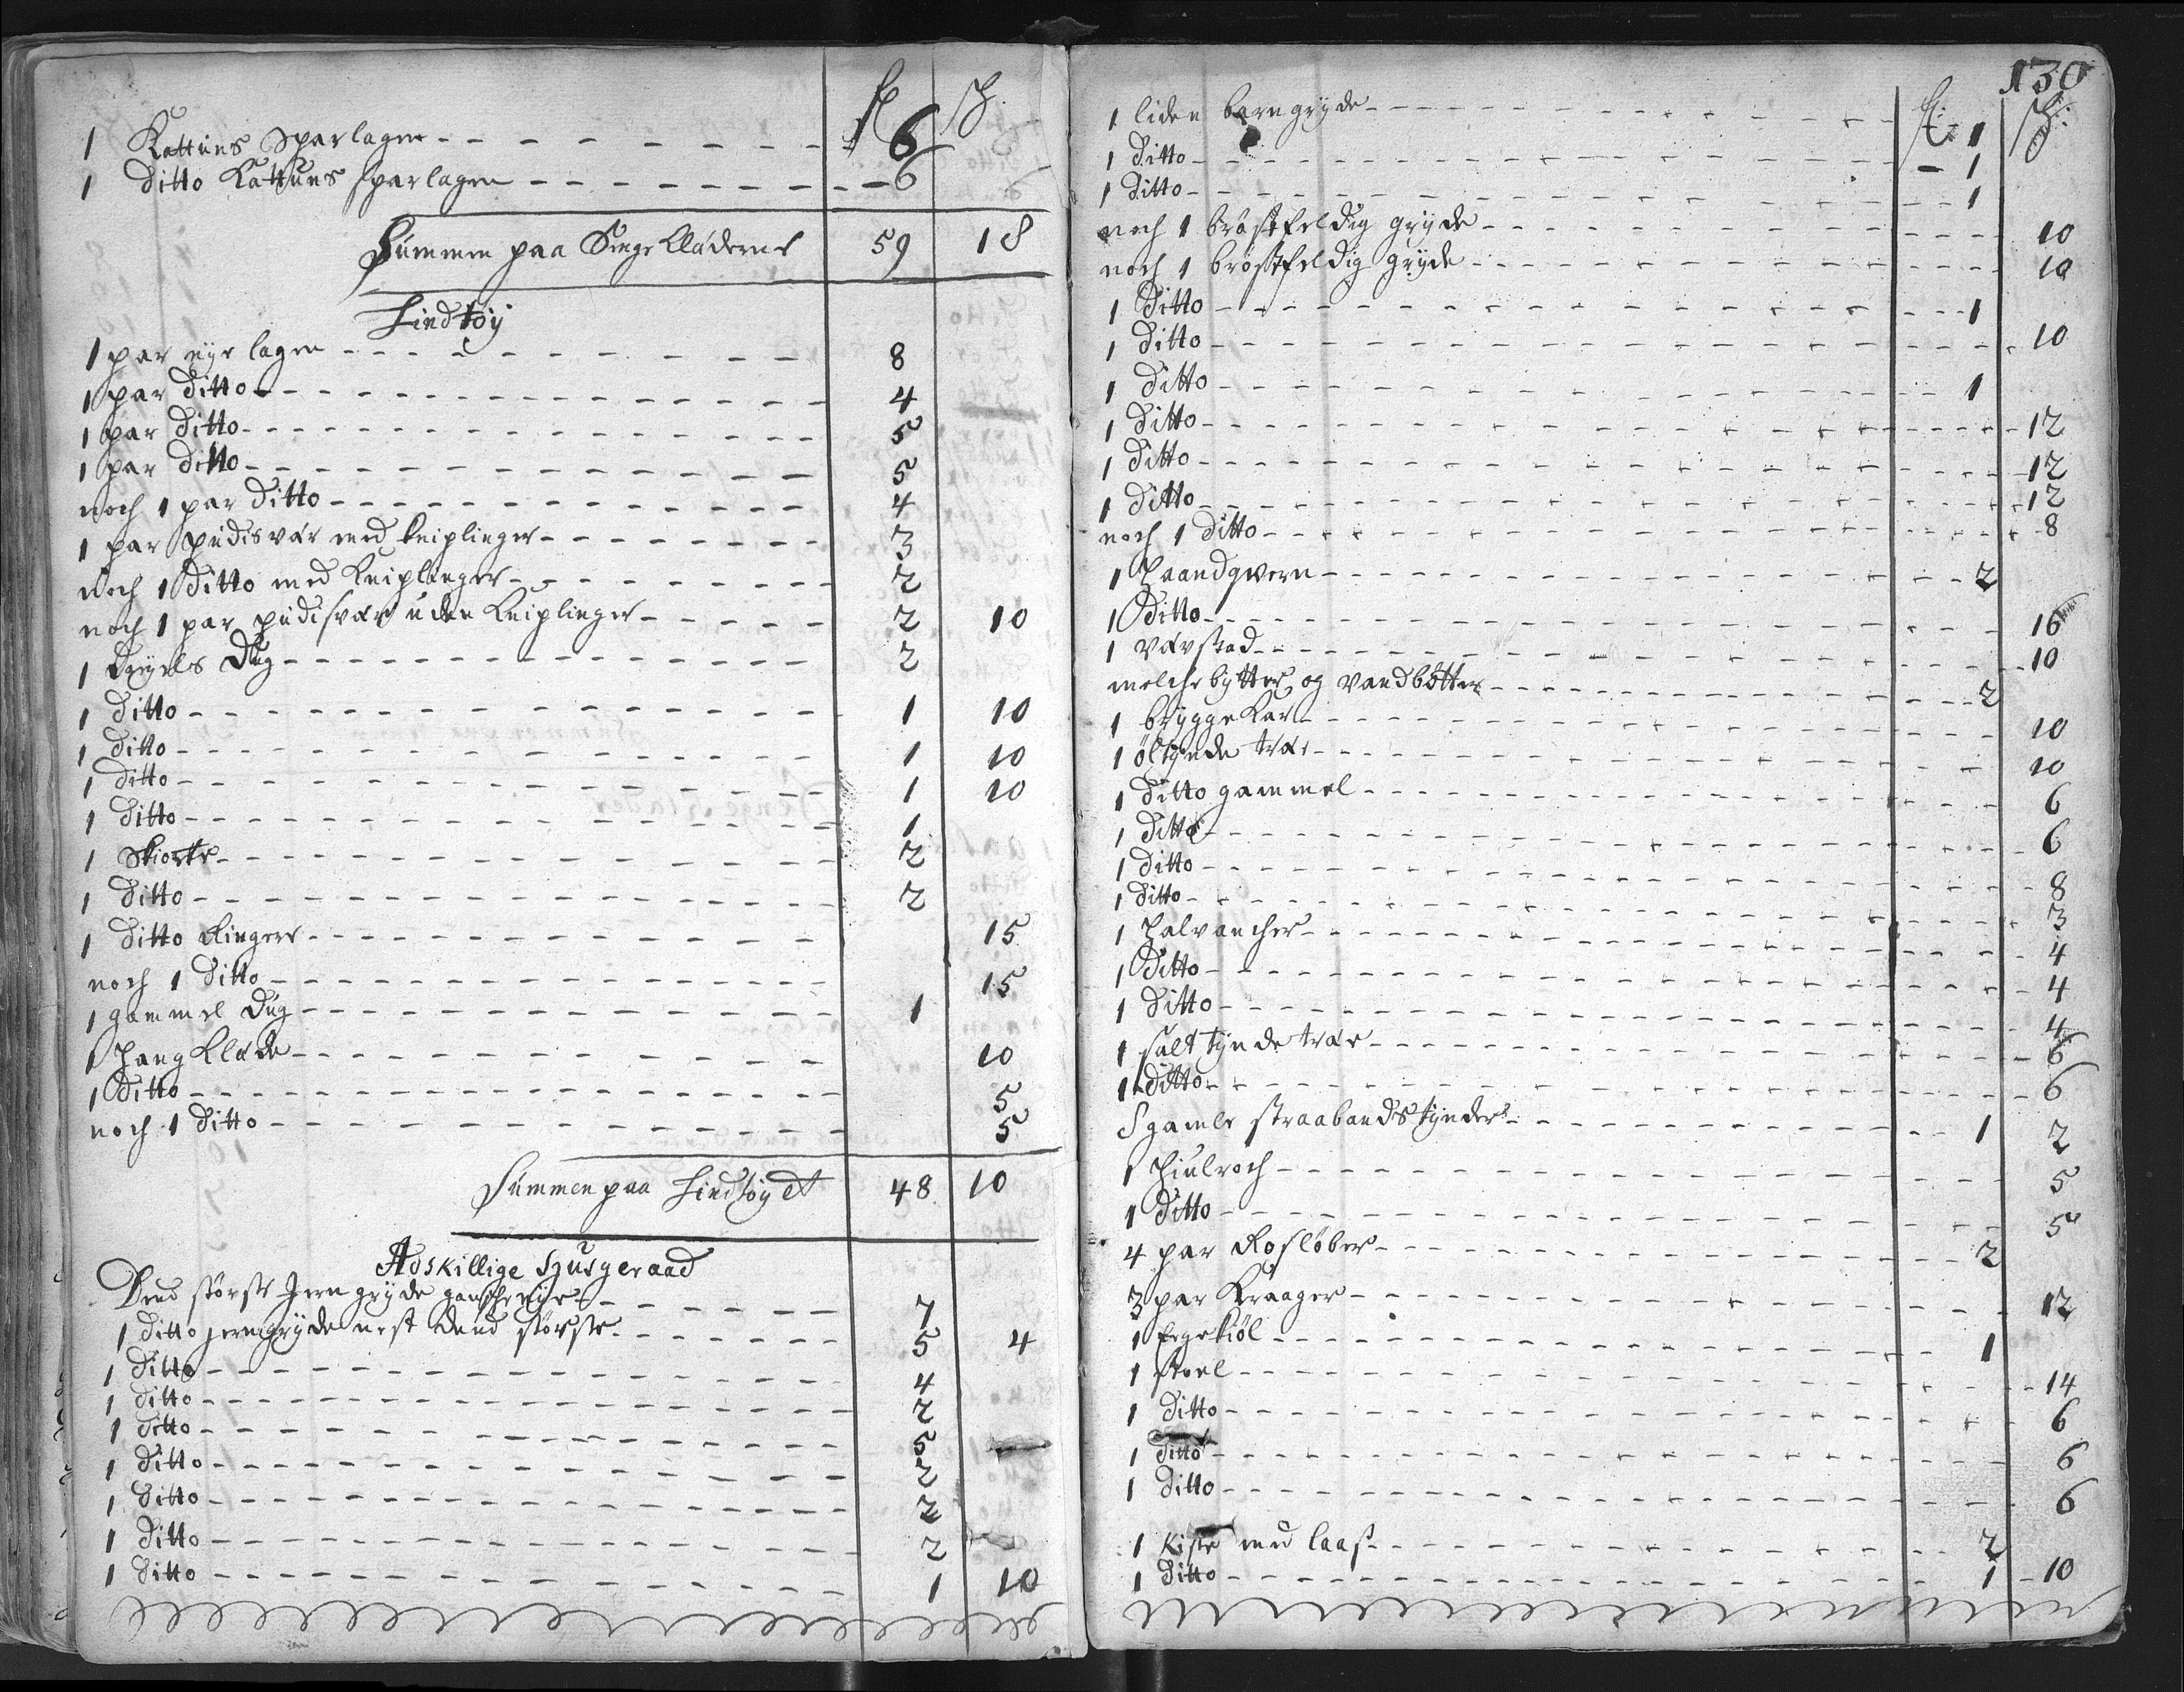 1 Kattuns Sparlagen - - - 6
1 Ditto Kattuns sparlagen - - - 6
Summen paa Senge Klæderne 59 18
Lindtøy
1 par nye lagen - - - 8
1 par Ditto - - - 4
1 par Ditto - - - 5
1 par Ditto - - - 5
noch 1 par Ditto - - - 4
1 par pudisvár med kniplinger - - - 3
noch 1 Ditto med Kniplinger - - - 2
noch 1 par pudisvár uden Kniplinger - - - 2 10
1 Dreyels Dug - - - 2
1 Ditto - - - 1 10
1 Ditto - - - 1 10
1 Ditto - - - 1 10
1 Ditto - - - 1
1 Skiorte - - - 2
1 Ditto - - - 2
1 Ditto Ringere - - - 15
noch 1 Ditto - - - 15
1 gammel Dug - - - 1
1 Hang Klæde - - - 10
1 Ditto - - - 5
noch 1 Ditto - - - 5
Summen paa Lindtøyet 48 10
Adskillige Husgeraad
Dend største Jern gryde gansche nye - - - 7
1 Ditto jerngryde nest dend største - - - 5 4
1 Ditto - - - 4
1 Ditto - - - 2
1 Ditto - - - 5
1 Ditto - - - 2
1 Ditto - - - 2
1 Ditto - - - 2
1 Ditto - - - 1 10
130
1 liden barngryde - - - 1
1 Ditto - - - 1
1 Ditto - - - 1
noch 1 brøstfeldig gryde - - - 10
noch 1 brøstfeldig gryde - - - 10
1 Ditto - - - 1
1 Ditto - - - 10
1 Ditto - - - 1
1 Ditto - - - 12
1 Ditto - - - 12
1 Ditto - - - 12
noch 1 Ditto - - - 8
1 Haandqvern - - - 2
1 Ditto - - - 16
1 Vævstad - - - 10
melche bytter og vandbøtter - - - 2
1 brygge Kar - - - 10
1 øltynde træe - - - 10
1 Ditto gammel - - - 6
1 Ditto - - - 6
1 Ditto - - - 8
1 Ditto - - - 3
1 Halvancher - - - 4
1 Ditto - - - 4
1 Ditto - - - 4
1 salt tynde træe - - - 6
1 Ditto - - - 6
gamle straabands tynder - - - 1 2
1 Hiulroch - - - 5
1 Ditto - - - 5
4 par Kosløber - - - 2
3 par Kraager - - - 12
1 - - - 1
1 stoel - - - 14
1 Ditto - - - 6
1 Ditto - - - 6
1 Ditto - - - 6
1 Kiste med laas - - - 2
1 Ditto - - - 1 10